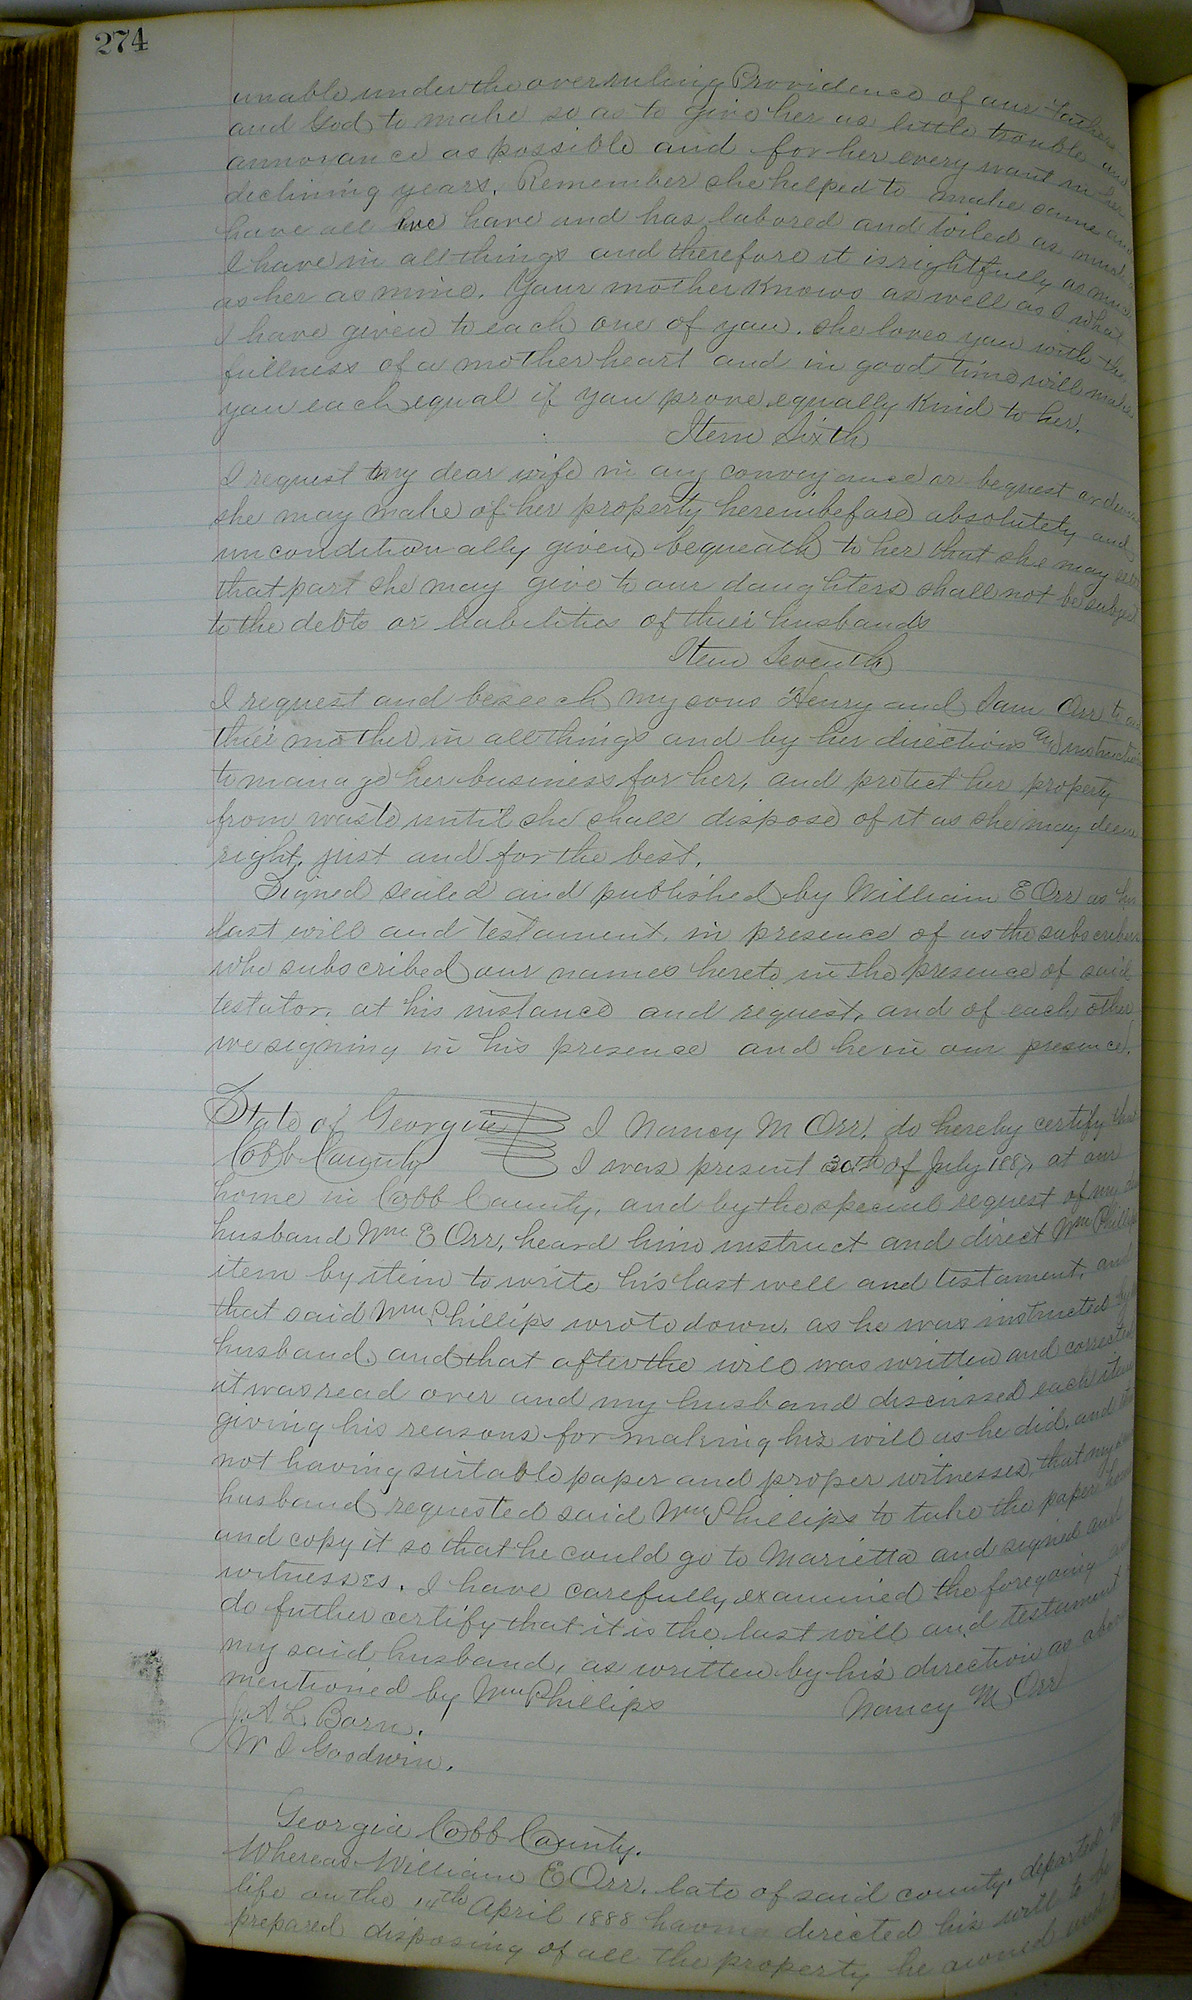 274
unable under the overruling Providence of our Father
and God, to make so as to give her as little trouble and
annoyance as possible and for her every want in her
declining years, Remember she helped to make same and
have all we have and has labored and toiled as much as
I have in all things and therefore it is rightfully as much
as her as mine. Your mother knows as well as I what
I have given to each one of you. She loves you with the
fullness of a mother heart and in good time will make
you each equal if you prove equally kind to her.
Item Sixth
I request my dear wife in any conveyance or bequest
she may make of her property hereinbefore absolutely and
unconditionally given, bequeath to her that she may
that part she may give to our daughters shall not be subject
to the debts or liabilities of their husbands
Item Seventh
I request and beseech my sons Henry and Sam Orr to
their mother in all things and by her directions and instruction
to manage her business for her, and protect her property
from waste until she shall dispose of it as she may deem
right, just and for the best.
Signed sealed and published by William E Orr as his
last will and testament, in presence of us the subscribers
who subscribed our names hereto in the presence of said
testator, at his instance and request, and of each other
we signing in his presence and he in our presence.
State of Georgia I Nancy M Orr, do hereby certify that
Cobb County I was present 30th of July 1887, at our
home in Cobb County, and by the special request of my
husband Wm E Orr, heard him instruct and direct Wm Phillips
item by item to write his last well and testament, and
that said Wm Phillips wrote down, as he was instructed by
husband, and that after the will was written and corrected
it was read over and my husband discussed each item
giving his reasons for making his will as he did, and
not having suitable paper and proper witnesses, that my
husband requested said Wm Phillips to take the paper home
and copy it so that he could go to Marietta and signed and
witnesses. I have carefully examined the foregoing
do futher certify that it is the last will and testament
my said husband, as written by his direction as above
mentioned by Wm Phillips Nancy M Orr
J. A L. Born.
W I Goodwin.
Georgia Cobb County.
Whereas William E Orr, late of said county, departed
life on the 14th April 1888 having directed his will to be
prepared disposing of all the property he owned